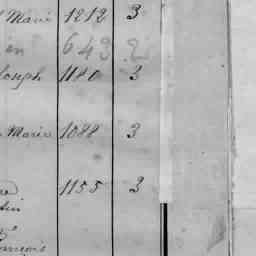 Marie 1212 3
en 643 2
Joseph 1180 3
Marie 1088 3
1155 3